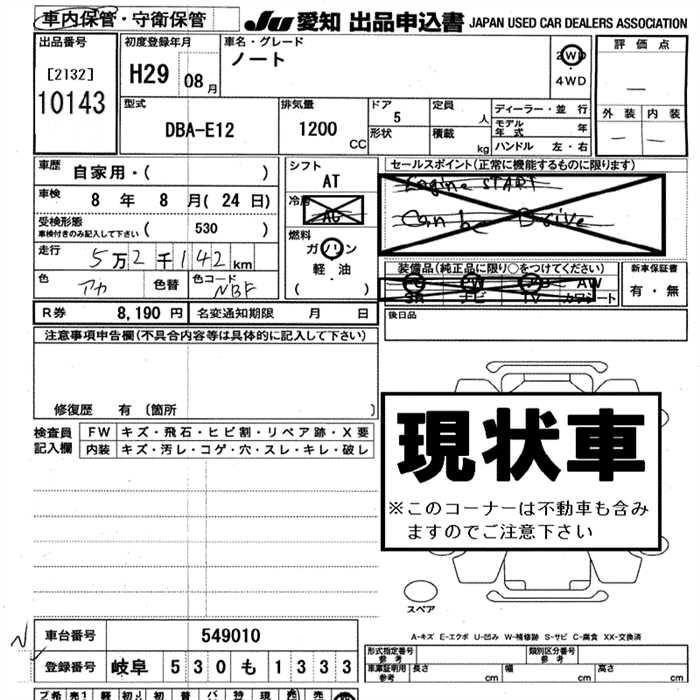 車内保管・守衛保管
JU 愛知 出品申込書 JAPAN USED CAR DEALERS ASSOCIATION
出品番号
[2132]
10143
初度登録年月
H29 08月
車名・グレード
ノート
2WD
4WD
評価点
—
外装 内装
— —
型式
DBA-E12
排気量
1200 CC
ドア 5
形状
定員 人
積載 kg
ディーラー・並行
モデル年式 年
ハンドル 左・右
車歴 自家用・( )
車検 8年 8月(24日)
受検形態
車検付きのみ記入して下さい ( 530 )
走行 5万2千142km
色 アカ 色替 色コード NBF
シフト
AT
冷房
AC
燃料
ガソリン
軽・油
( )
セールスポイント(正常に機能するものに限ります)
Engine START
Can be Drive
装備品(純正品に限り○をつけてください)
SR ナビ TV カワシート
AW
新車保証書
有・無
R券 8,190円 名変通知期限 月 日
後日品
注意事項申告欄(不具合内容等は具体的に記入して下さい)
修復歴 有 〔箇所 〕
検査員記入欄
FW キズ・飛石・ヒビ割・リペア跡・X要
内装 キズ・汚レ・コゲ・穴・スレ・キレ・破レ
現状車
※このコーナーは不動車も含み
ますのでご注意下さい
スペア
A-キズ E-エクボ U-凹み W-補修跡 S-サビ C-腐食 XX-交換済
車台番号 549010
登録番号 岐阜 530 も 1333
形式指定番号 参考
類別区分番号 参考
車庫証明用 参考 長さ cm 幅 cm 高さ cm